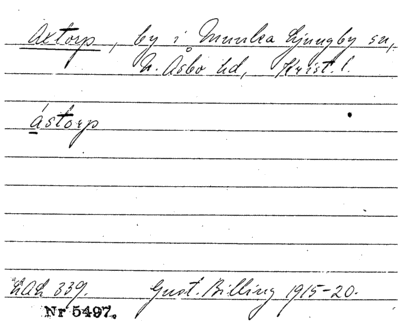 Axtorp, by i Munka Ljungby sn,
N. Åsbo hd, Krist. l.
ástorp
LAL 339. Gust. Billing 1915-20.
Nr 5497.